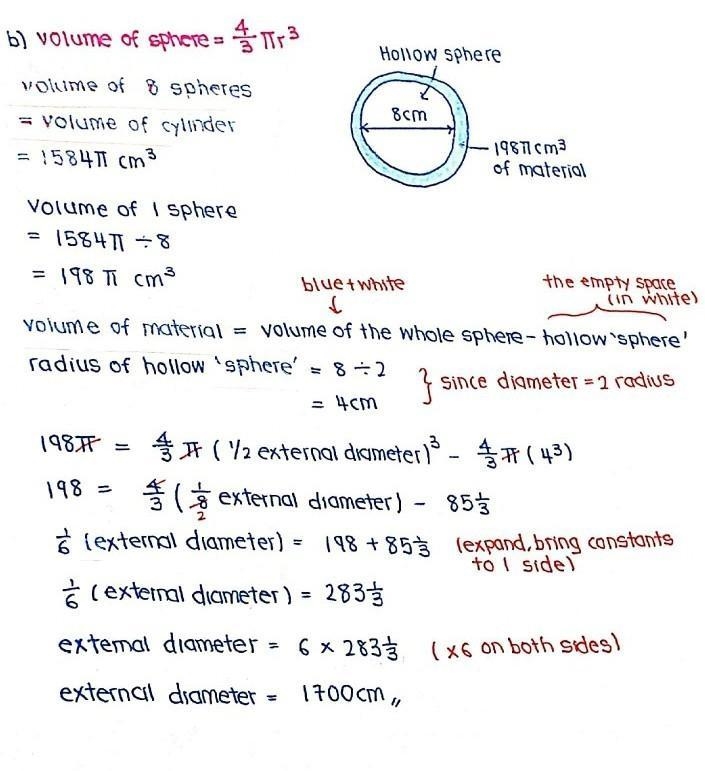 b) volume of sphere = 4/3 πr³
Hollow sphere
8cm
198πcm³
of material
volume of 8 spheres
= volume of cylinder
= 1584π cm³
volume of 1 sphere
= 1584π ÷ 8
= 198π cm³
blue + white
the empty space
(in white)
volume of material = volume of the whole sphere - hollow 'sphere'
radius of hollow 'sphere' = 8 ÷ 2
= 4cm
} since diameter = 2 radius
198π = 4/3 π (1/2 external diameter)³ - 4/3 π (4³)
198 = 4/3 (1/8 external diameter) - 85 1/3
2
1/6 (external diameter) = 198 + 85 1/3 (expand, bring constants
to 1 side)
1/6 (external diameter) = 283 1/3
external diameter = 6 × 283 1/3 (×6 on both sides)
external diameter = 1700cm //